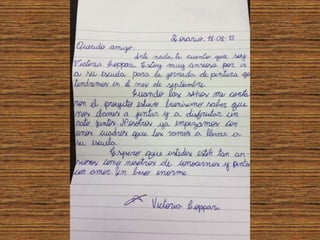 Rosario, 18-08-15
Querido amigo:
Ante nada, te cuento que soy
Victoria Coppari. Estoy muy ansiosa por ir
a su escuela para la jornada de pintura que
tendremos en el mes de septiembre.
Cuando las seños me conta
ron el proyecto estuvo buenísimo saber que
nos vamos a juntar y a disfrutar un
rato juntos. Nosotros ya empezamos con
unos cuadros que los vamos a llevar a
su escuela.
Espero que ustedes estén tan an-
siosos como nosotros de conocernos y pintar
con amor. Un beso enorme.
Victoria Coppari